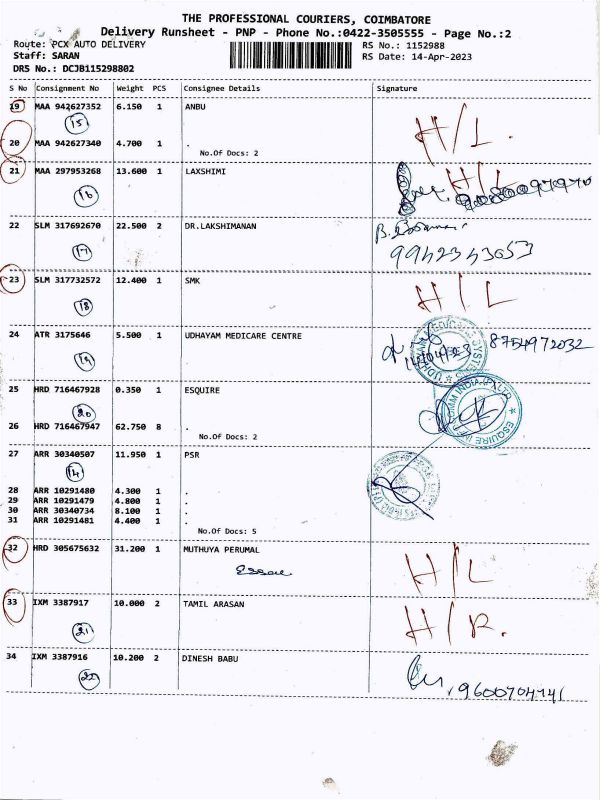 THE PROFESSIONAL COURIERS, COIMBATORE
Delivery Runsheet - PNP - Phone No.:0422-3505555 - Page No.:2
Route: PCX AUTO DELIVERY RS No.: 1152988
Staff: SARAN RS Date: 14-Apr-2023
DRS No.: DCJB115298802
S No Consignment No Weight PCS Consignee Details Signature
19 MAA 942627352 6.150 1 ANBU
15
H/L.
20 MAA 942627340 4.700 1 .
No.Of Docs: 2
21 MAA 297953268 13.600 1 LAXSHIMI H/L
16
22 SLM 317692670 22.500 2 DR.LAKSHIMANAN
17 9942343053
23 SLM 317732572 12.400 1 SMK H/L
18
24 ATR 3175646 5.500 1 UDHAYAM MEDICARE CENTRE 8754972032
19 14/04/23
25 HRD 716467928 0.350 1 ESQUIRE
20
26 HRD 716467947 62.750 8 .
No.Of Docs: 2
27 ARR 30340507 11.950 1 PSR
14
28 ARR 10291480 4.300 1 .
29 ARR 10291479 4.800 1 .
30 ARR 30340734 8.100 1 .
31 ARR 10291481 4.400 1 .
No.Of Docs: 5
32 HRD 305675632 31.200 1 MUTHUYA PERUMAL H/L
33 IXM 3387917 10.000 2 TAMIL ARASAN H/R.
21
34 IXM 3387916 10.200 2 DINESH BABU
22 9600704741